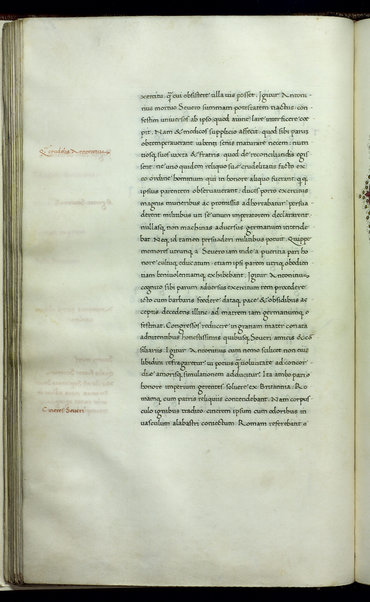 exercitu: q̃ cui obsistere ulla uis posset. Igitur Antoni-
nus mortuo Seuero summam potestatem nactus: con-
festim uniuersos ab ipso, quod aiunt, lare interficere coe-
pit. Nam & medicos supplicio affecit: quod sibi parus
obtemperauerant iubenti senis maturare necem: nutri
tiosq; suos iuxta & fratris: quod de reconciliandis egis
sent. ne uno quidem reliquo suae crudelitatis facto: ex
eo ordine hominum qui in honore aliquo fuerint: q̃
ipsius parentem obseruauerant. duces porro exercitus
magnis muneribus ac promissis adhortabatur: persua
derent militibus ut se unum imperatorem declararent:
nullasq; non machinas aduersus germanum intende
bat. Nec id tamen persuaderi militibus potuit. Quippe
memores utrunq; a Seuero iam inde a pueritia pari ho
nore cultuq; educatum: etiam ipsi parem utriq; obedien
tiam beniuolentiamq; exhibebant. Igitur Antoninus,
cognito sibi parum aduersus exercitum rem procedere:
icto cum barbaris foedere: dataq; pace & obsidibus ac
ceptis: decedens illinc: ad matrem iam germanumq;
festinat. Congressos reducere in gratiam mater conata
admitentibus honestissimis quibusq; Seueri amicis &
siliariis. Igitur Antoninus cum nemo esset non eius
libidini refragaretur: in potius q̃ uoluntate ad concor
diae amorisq; simulationem adducitur. Ita ambo pari
honore imperium gerentes: soluere ex Britannia: Ro
mamq; cum patris reliquiis contendebant. Nam corpus
culo ignibus tradito: cinerem ipsum cum odoribus in
uasculum alabastri coniectum: Romam referebant:
Crudelitas Antonini
Cineres Seueri